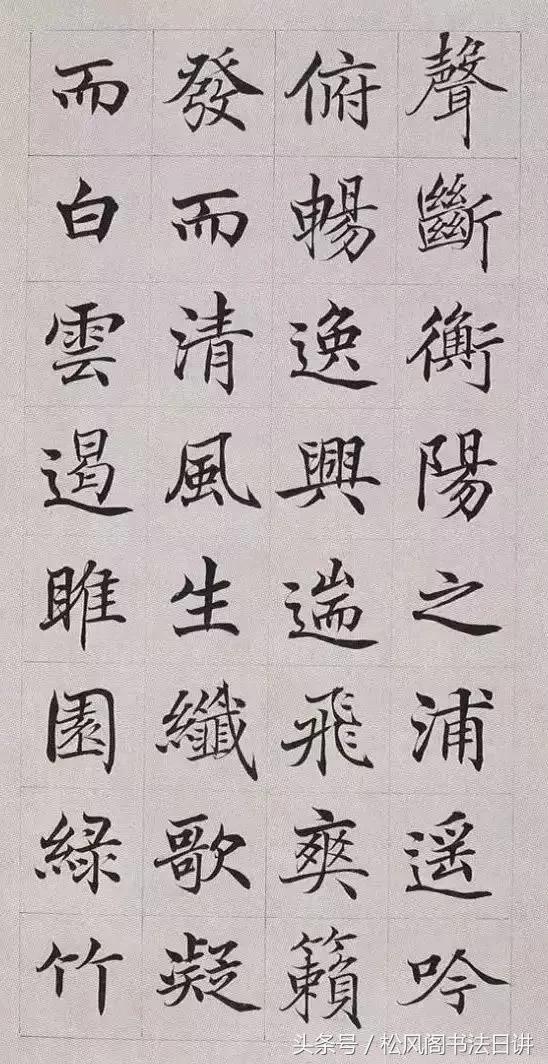 聲斷衡陽之浦遥吟
俯暢逸興遄飛爽籟
發而清風生纖歌凝
而白雲遏睢園緑竹
头条号/松风阁书法日讲